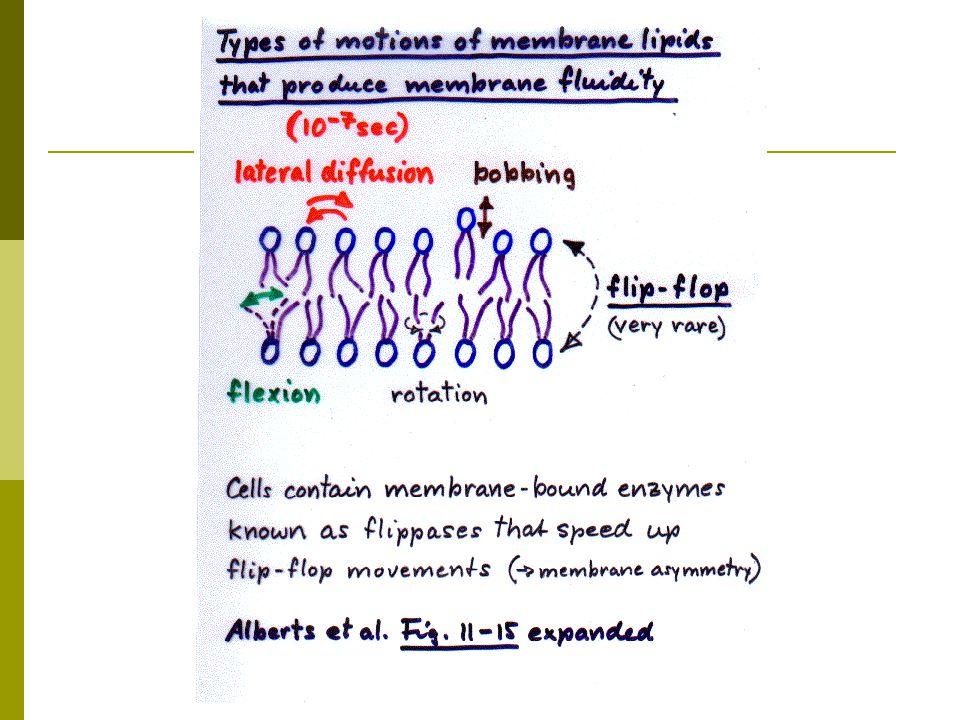 Types of motions of membrane lipids
that produce membrane fluidity
(10⁻⁷sec)
lateral diffusion bobbing
flip-flop
(very rare)
flexion rotation
Cells contain membrane-bound enzymes
known as flippases that speed up
flip-flop movements (→ membrane asymmetry)
Alberts et al. Fig. 11-15 expanded